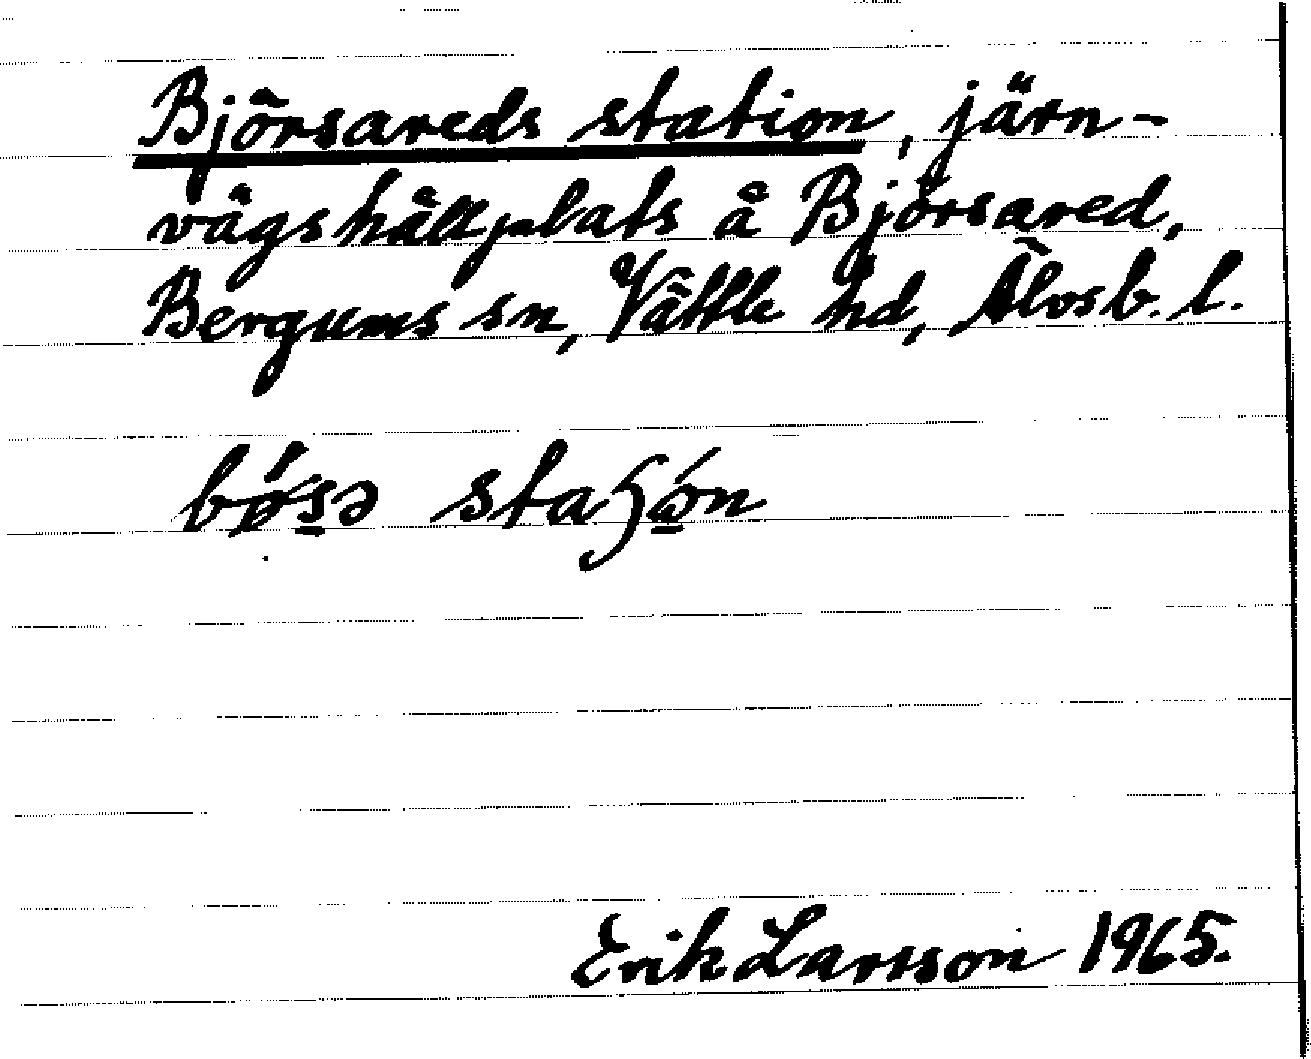 Björsareds station, järn-
vägshållplats å Björsared,
Bergums sn, Vättle hd, Älvsb. l.
bǿsə staʃón
Erik Larsson 1965.